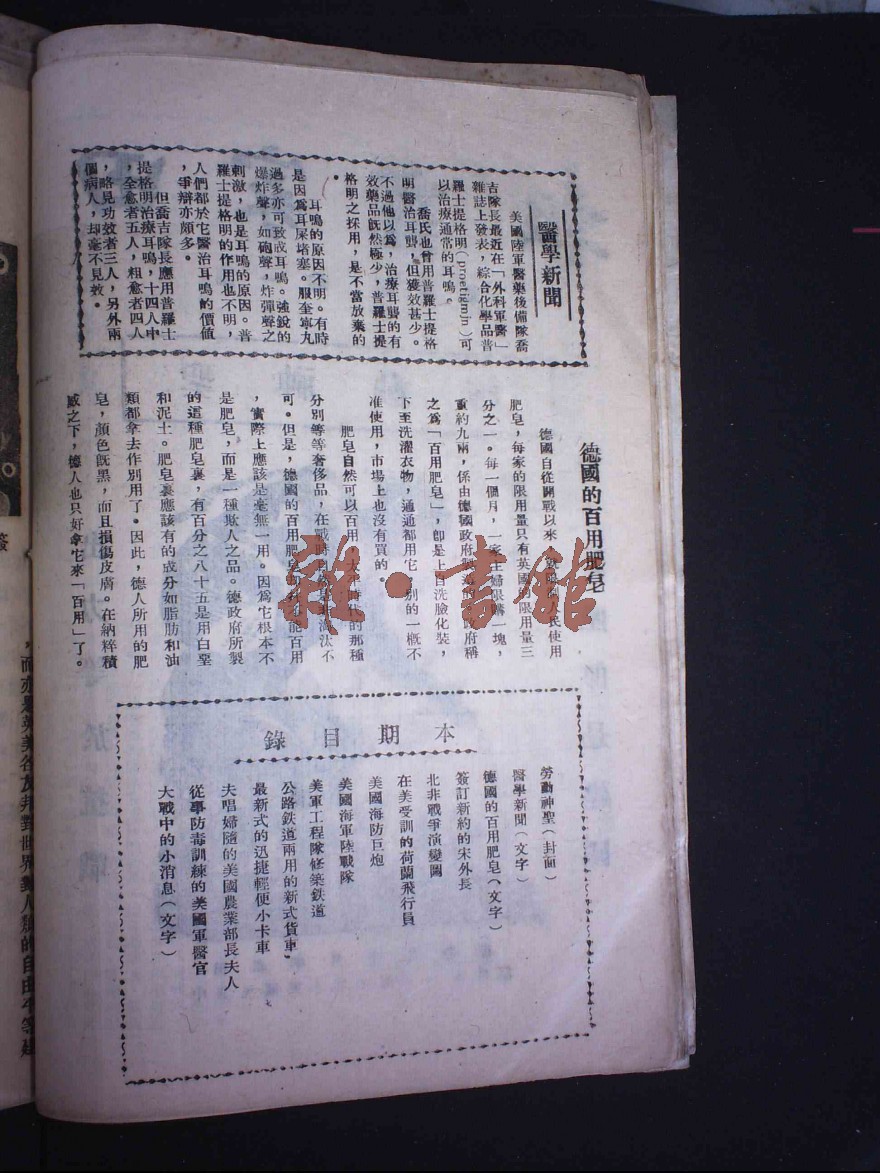 醫學新聞
美國陸軍醫藥後備隊喬
吉隊長最近在「外科軍醫」
雜誌上發表，綜合化學品普
羅士提格明（proetigmin）可
以治療通常的耳鳴。
喬氏也曾用普羅士提格
明醫治耳聾，但獲效甚少。
不過他以為，治療耳聾的有
效藥品旣然極少，普羅士提
格明之採用，是不當放棄的
。
耳鳴的原因不明。有時
是因為耳屎堵塞。服奎寧丸
過多亦可致成耳鳴。強銳的
爆炸聲，如砲聲，炸彈聲之
刺激，也是耳鳴的原因。普
羅士提格明的作用也不明，
人們都於它醫治耳鳴的價値
，爭辯亦頗多。
但喬吉隊長應用普羅士
提格明治療耳鳴，十四人中
，全愈者五人，粗愈者四人
，略見功效者三人，另外兩
個病人，却毫不見效。
德國的百用肥皂
德國自從開戰以來，就限制人民使用
肥皂，每家的限用量只有英國的限用量三
分之一。每一個月，一家主婦限購一塊，
重約九兩，係由德國政府製造的，政府稱
之爲「百用肥皂」，卽是上自洗臉化裝，
下至洗濯衣物，通通都用它，別的一概不
准使用，市場上也沒有買的。
肥皂自然可以百用，太平時代的那種
分別等等奢侈品，在戰時
可。但是，德國的百用肥皂
，實際上應該是毫無一用。因爲它根本不
是肥皂，而是一種欺人之品。德政府所製
的這種肥皂裏，有百分之八十五是用白堊
和泥土。肥皂裏應該有的成分如脂肪和油
類都拿去作別用了。因此，德人所用的肥
皂，顏色旣黑，而且損傷皮膚。在納粹積
威之下，德人也只好拿它來「百用」了。
本期目錄
勞動神聖（封面）
醫學新聞（文字）
德國的百用肥皂（文字）
簽訂新約的宋外長
北非戰爭演變圖
在美受訓的荷蘭飛行員
美國海防巨炮
美國海軍陸戰隊
美軍工程隊修築鉄道
公路鉄道兩用的新式貨車
最新式的迅捷輕便小卡車
夫唱婦隨的美國農業部長夫人
從事防毒訓練的美國軍醫官
大戰中的小消息（文字）
雜·書館